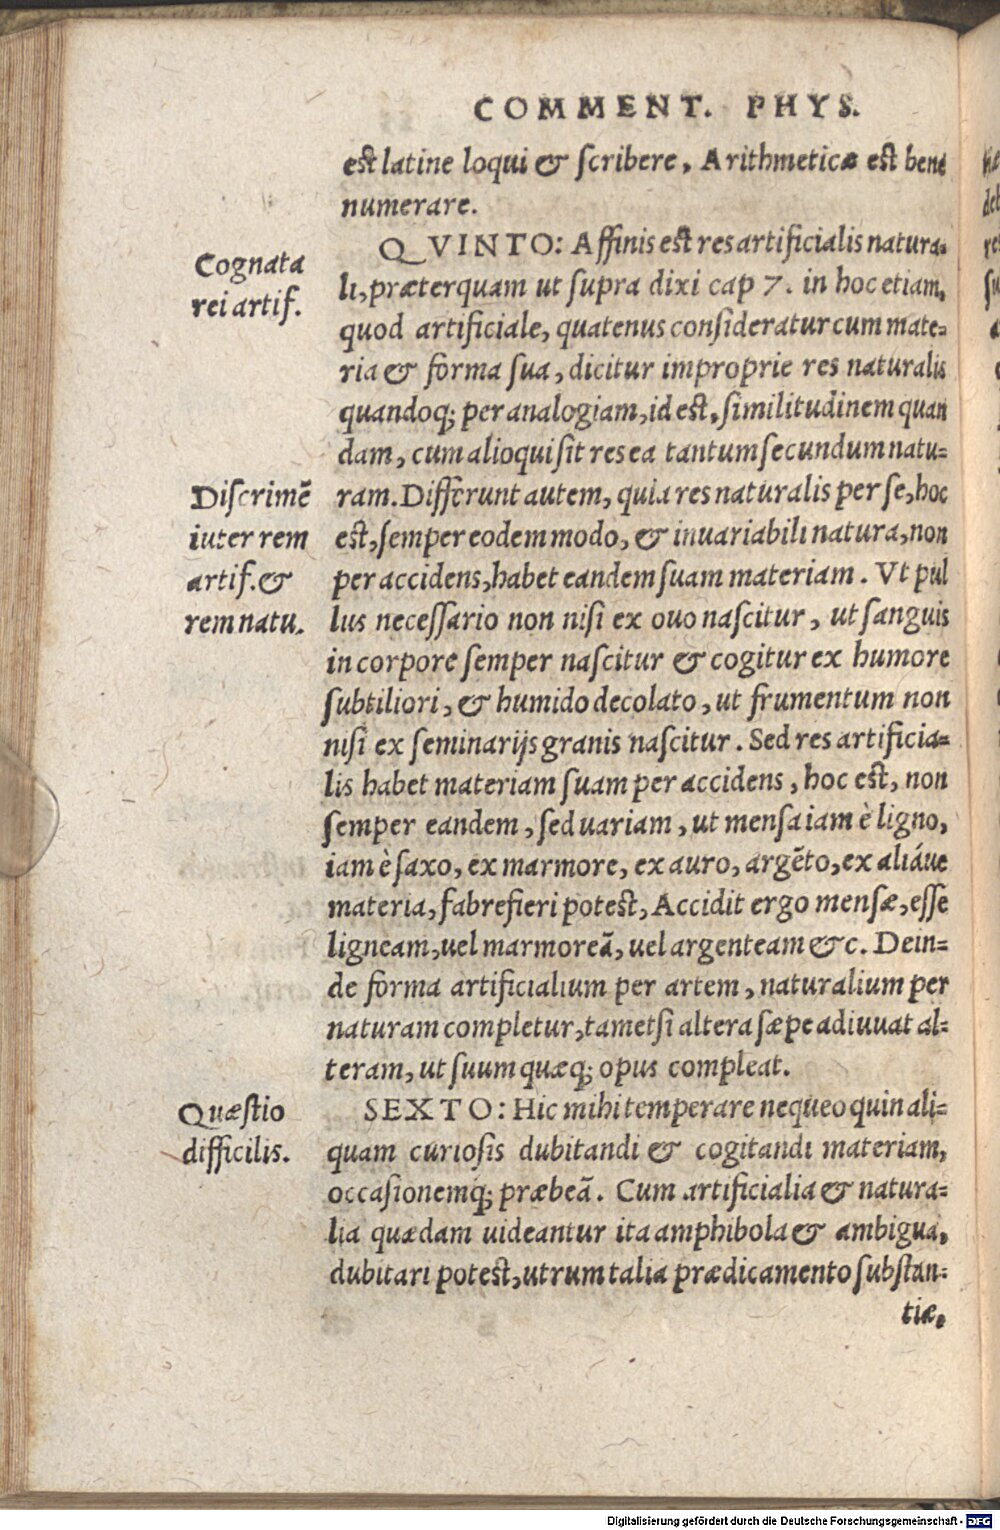 COMMENT. PHYS.
est latine loqui & scribere, Arithmeticæ est bene
numerare.
Cognata
rei artif.
QVINTO: Affinis est res artificialis natura-
li, præterquam ut supra dixi cap 7. in hoc etiam,
quod artificiale, quatenus consideratur cum mate-
ria & forma sua, dicitur improprie res naturalis
quandoq; per analogiam, id est, similitudinem quan
dam, cum alioqui sit res ea tantum secundum natu-
Discrimē
iuter rem
artif. &
rem natu.
ram. Differunt autem, quia res naturalis per se, hoc
est, semper eodem modo, & inuariabili natura, non
per accidens, habet eandem suam materiam. Vt pul
lus necessario non nisi ex ouo nascitur, ut sanguis
in corpore semper nascitur & cogitur ex humore
subtiliori, & humido decolato, ut frumentum non
nisi ex seminarijs granis nascitur. Sed res artificia-
lis habet materiam suam per accidens, hoc est, non
semper eandem, sed uariam, ut mensa iam è ligno,
iam è saxo, ex marmore, ex auro, argēto, ex aliáue
materia, fabrefieri potest, Accidit ergo mensæ, esse
ligneam, uel marmoreā, uel argenteam &c. Dein-
de forma artificialium per artem, naturalium per
naturam completur, tametsi altera sæpe adiuuat al-
teram, ut suum quæq; opus compleat.
Quæstio
difficilis.
SEXTO: Hic mihi temperare nequeo quin ali-
quam curiosis dubitandi & cogitandi materiam,
occasionemq; præbeā. Cum artificialia & natura-
lia quædam uideantur ita amphibola & ambigua,
dubitari potest, utrum talia prædicamento substan-
tiæ,
Digitalisierung gefördert durch die Deutsche Forschungsgemeinschaft - DFG